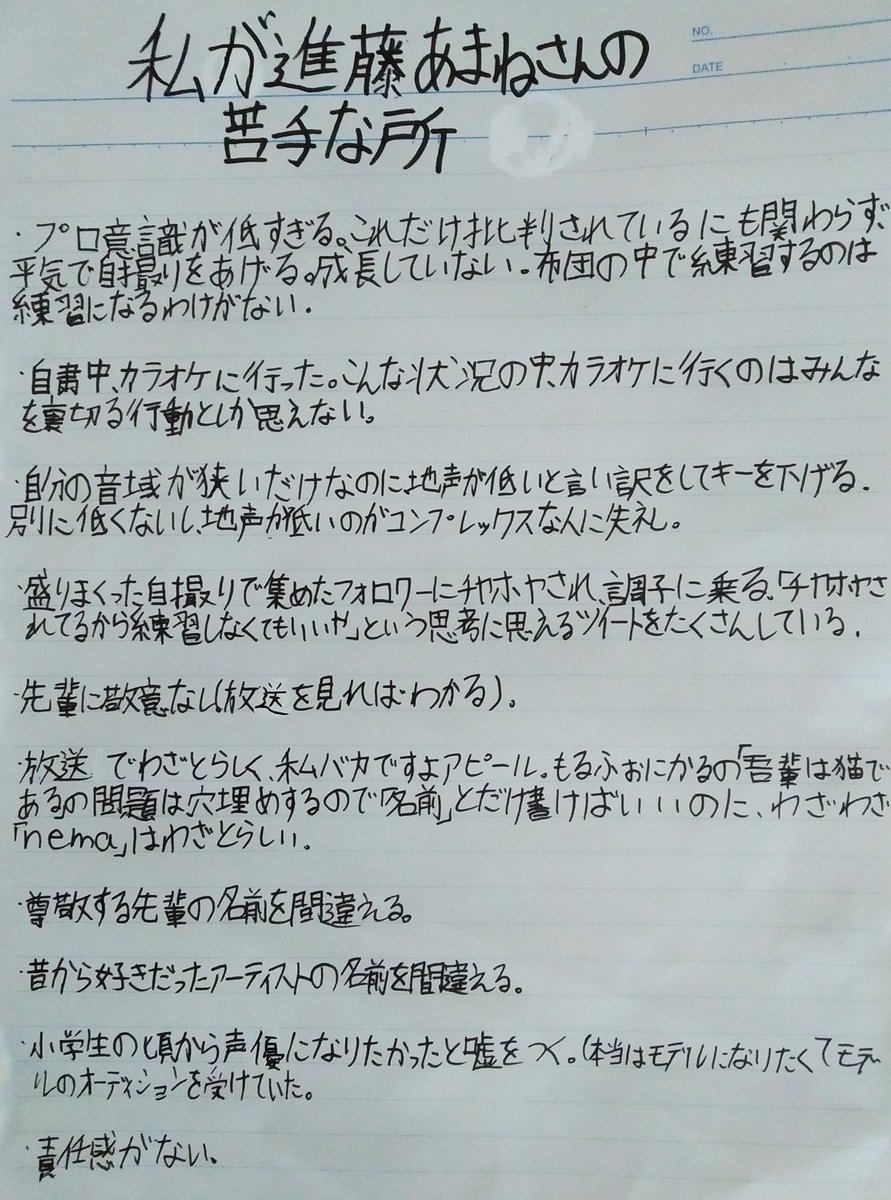 NO.
DATE
私が進藤あまねさんの
苦手な所
・プロ意識が低すぎる。これだけ批判されているにも関わらず、
平気で自撮りをあげる。成長していない。布団の中で練習するのは
練習になるわけがない.
・自粛中、カラオケに行った。こんな状況の中、カラオケに行くのはみんな
を裏切る行動としか思えない。
・自分の音域が狭いだけなのに地声が低いと言い訳をしてキーを下げる.
別に低くないし、地声が低いのがコンプレックスな人に失礼。
・盛りまくった自撮りで集めたフォロワーにチヤホヤされ、調子に乗る。「チヤホヤさ
れてるから練習しなくてもいいや」という思考に思えるツイートをたくさんしている.
・先輩に敬意なし(放送を見ればわかる)。
・放送 でわざとらしく、私バカですよアピール。もるふぉにかるの「吾輩は猫で
ある」の問題は穴埋めするので「名前」とだけ書けばいいのに、わざわざ
「nema」はわざとらしい.
・尊敬する先輩の名前を間違える。
・昔から好きだったアーティストの名前を間違える。
・小学生の頃から声優になりたかったと嘘をつく。(本当はモデルになりたくてモデ
ルのオーディションを受けていた。
・責任感がない。